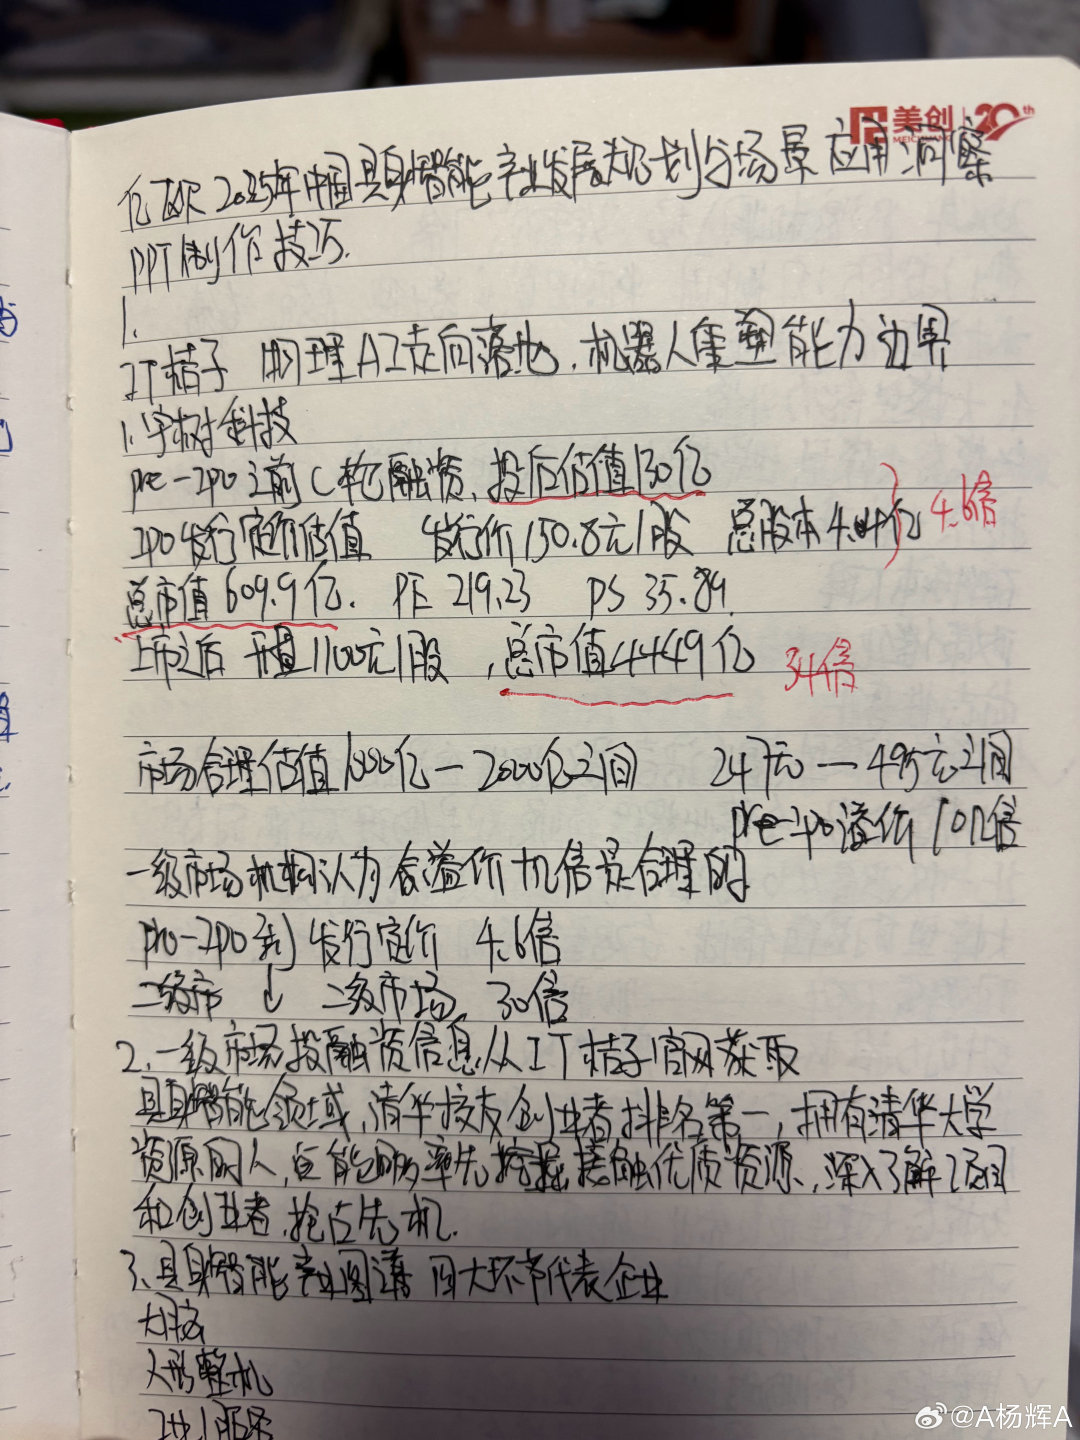 美创 20th
MEICHUANG
亿欧 2025年中国具身智能产业发展规划与场景应用洞察
PPT制作技巧.
1.
IT桔子 物理AI走向落地,机器人重塑能力边界
1.宇树科技
pre-IPO之前C轮融资,投后估值130亿
IPO发行定价估值 发行价150.8元/股 总股本4.04亿 4.6倍
总市值609.9亿. PE 219.23 PS 35.89
上市之后 开盘1100元/股,总市值4449亿 34倍
市场合理估值1000亿—2000亿之间 247元—495元之间
pre-IPO溢价10几倍
一级市场机构认为会溢价十几倍是合理的
pre-IPO到发行定价 4.6倍
二级市 ↓ 二级市场 30倍
2.一级市场投融资信息,从IT桔子官网获取
具身智能领域,清华校友创业者排名第一,拥有清华大学
资源的人,能够率先挖掘接触优质资源,深入了解项目
和创业者,抢占先机.
3.具身智能产业图谱 四大环节代表企业
大脑
人形整机
@A杨辉A